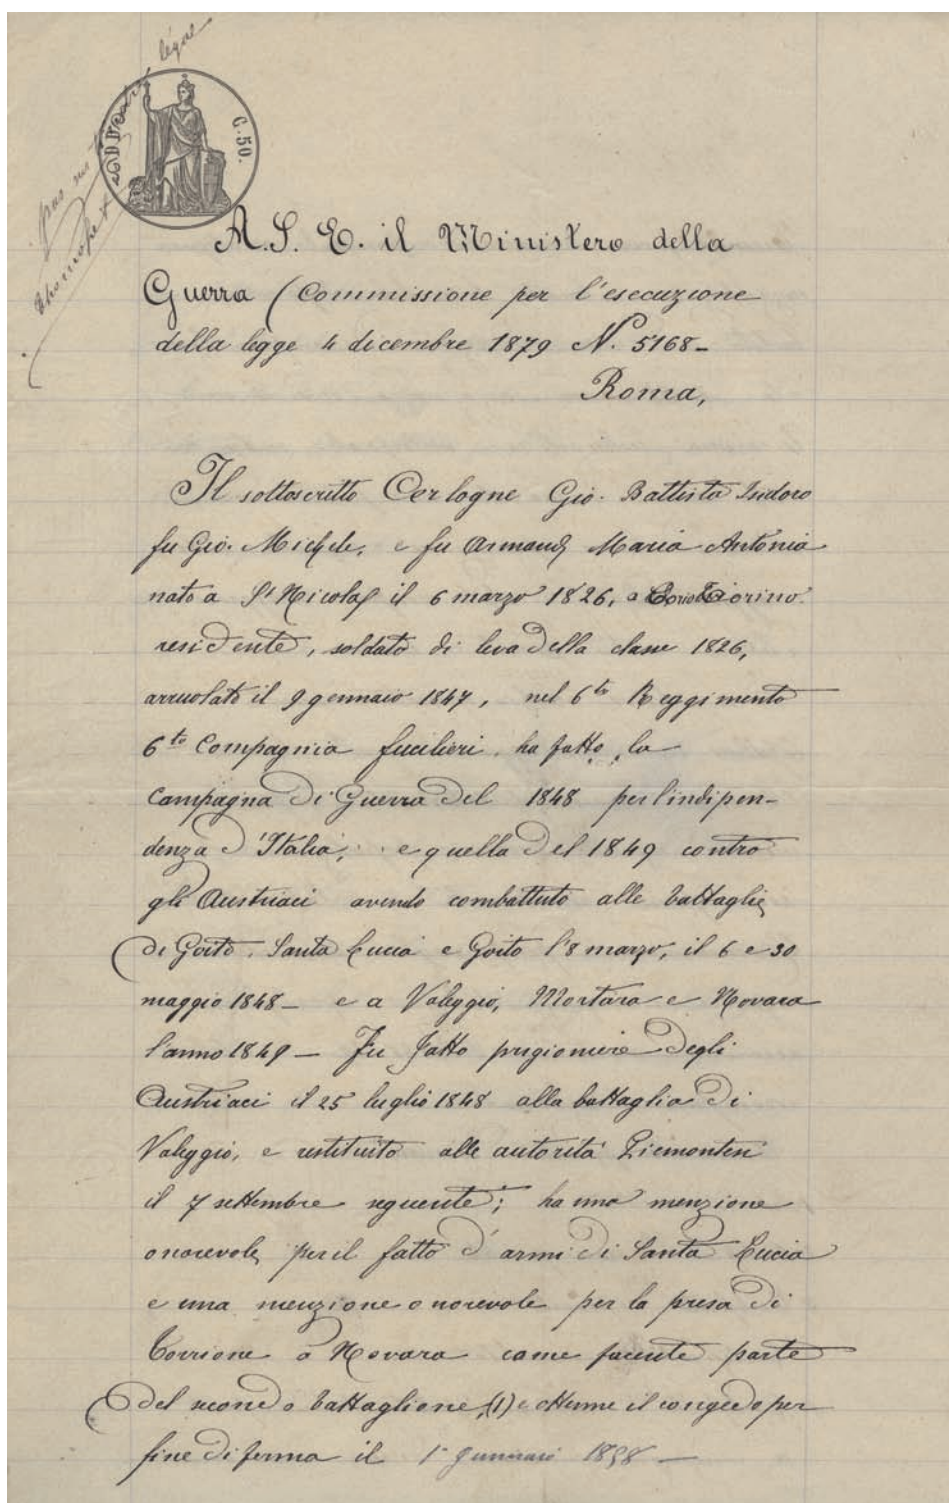 légne
pas sur
C. 50.
A. S. E. il Ministero della
Guerra (Commissione per l'esecuzione
della legge 4 dicembre 1879 N. 5168-
Roma,
Il sottoscritto Cerlogne Gio. Battista Isidoro
fu Gio. Michele, e fu Armand Maria Antonia
nato a St Nicolas il 6 marzo 1826, a Torino
residente, soldato di leva della classe 1826,
arruolato il 9 gennaio 1847, nel 6to Reggimento
6to Compagnia fucilieri, ha fatto la
Campagna di Guerra del 1848 per l'indipen-
denza d'Italia, e quella del 1849 contro
gli Austriaci avendo combattuto alle battaglie
di Goito, Santa Lucia e Goito l'8 marzo, il 6 e 30
maggio 1848- e a Valeggio, Mortara e Novara
l'anno 1849- Fu fatto prigioniere degli
Austriaci il 25 luglio 1848 alla battaglia di
Valeggio, e restituito alle autorità Piemontesi
il 7 settembre seguente; ha una menzione
onorevole per il fatto d'armi di Santa Lucia
e una menzione onorevole per la presa di
Torrione a Novara come facente parte
del secondo battaglione, (1) e ottenne il congedo per
fine di ferma il 1° Gennaio 1858-